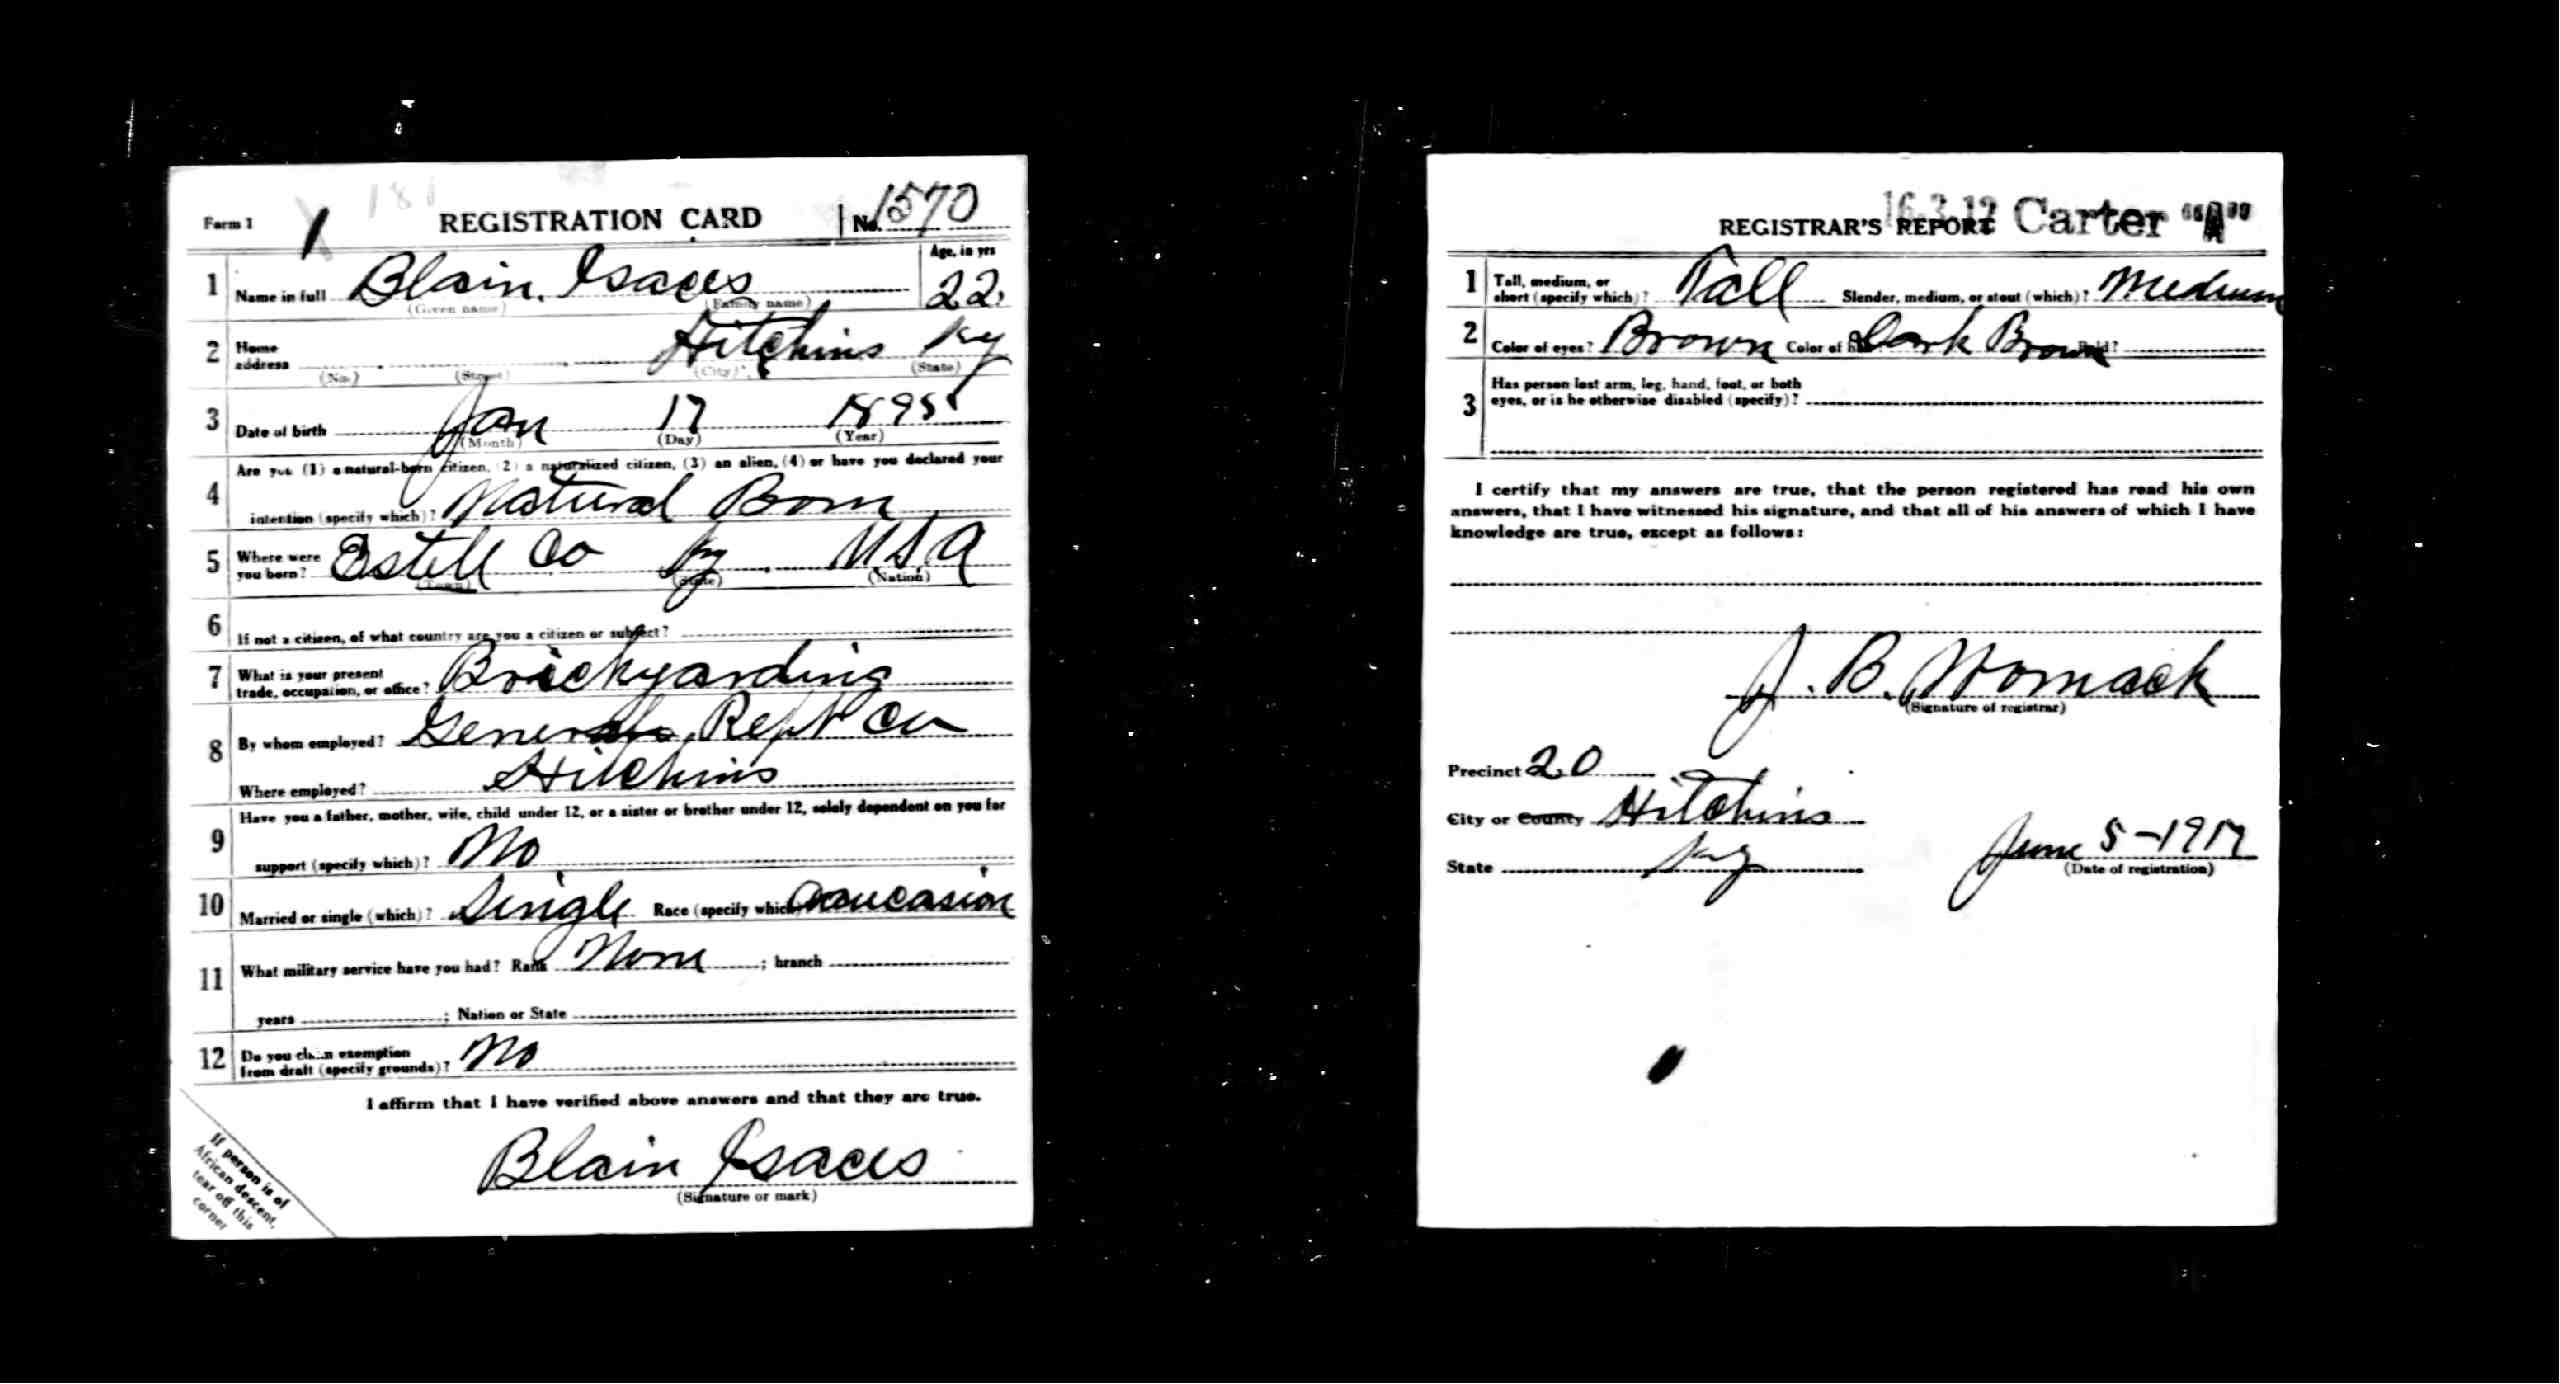 Form 1 1 181 REGISTRATION CARD No. 1570
1 Name in full Blain Isaccs Age, in yrs 22
(Given name) (Family name)
2 Home address Hitchins Ky
(No.) (Street) (City) (State)
3 Date of birth Jan 17 1895
(Month) (Day) (Year)
4 Are you (1) a natural-born citizen, (2) a naturalized citizen, (3) an alien, (4) or have you declared your
intention (specify which)? Natural Born
5 Where were you born? Estill Co Ky U.S.A
(Town) (State) (Nation)
6 If not a citizen, of what country are you a citizen or subject?
7 What is your present trade, occupation, or office? Brickyarding
8 By whom employed? General Co
Where employed? Hitchins
9 Have you a father, mother, wife, child under 12, or a sister or brother under 12, solely dependent on you for
support (specify which)? No
10 Married or single (which)? Single Race (specify which) Caucasion
11 What military service have you had? Rank None ; branch
years ; Nation or State
12 Do you claim exemption from draft (specify grounds)? No
I affirm that I have verified above answers and that they are true.
Blain Isaccs
(Signature or mark)
If person is of
African descent,
tear off this
corner
REGISTRAR'S REPORT 16-3-12 Carter "A"
1 Tall, medium, or short (specify which)? Tall Slender, medium, or stout (which)? Medium
2 Color of eyes? Brown Color of Dark Brown Bald?
3 Has person lost arm, leg, hand, foot, or both
eyes, or is he otherwise disabled (specify)?
I certify that my answers are true, that the person registered has read his own
answers, that I have witnessed his signature, and that all of his answers of which I have
knowledge are true, except as follows:
J. B. Womack
(Signature of registrar)
Precinct 20
City or County Hitchins
State Ky June 5-1917
(Date of registration)